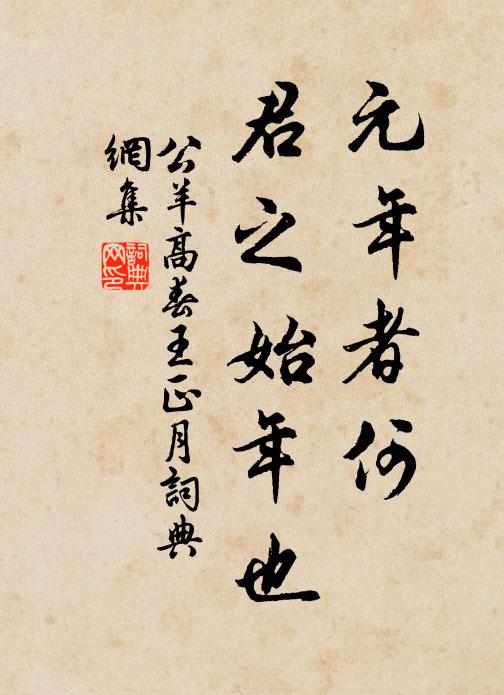 元年者何
君之始年也
公羊高春王正月詞典
網集
詞典
网印